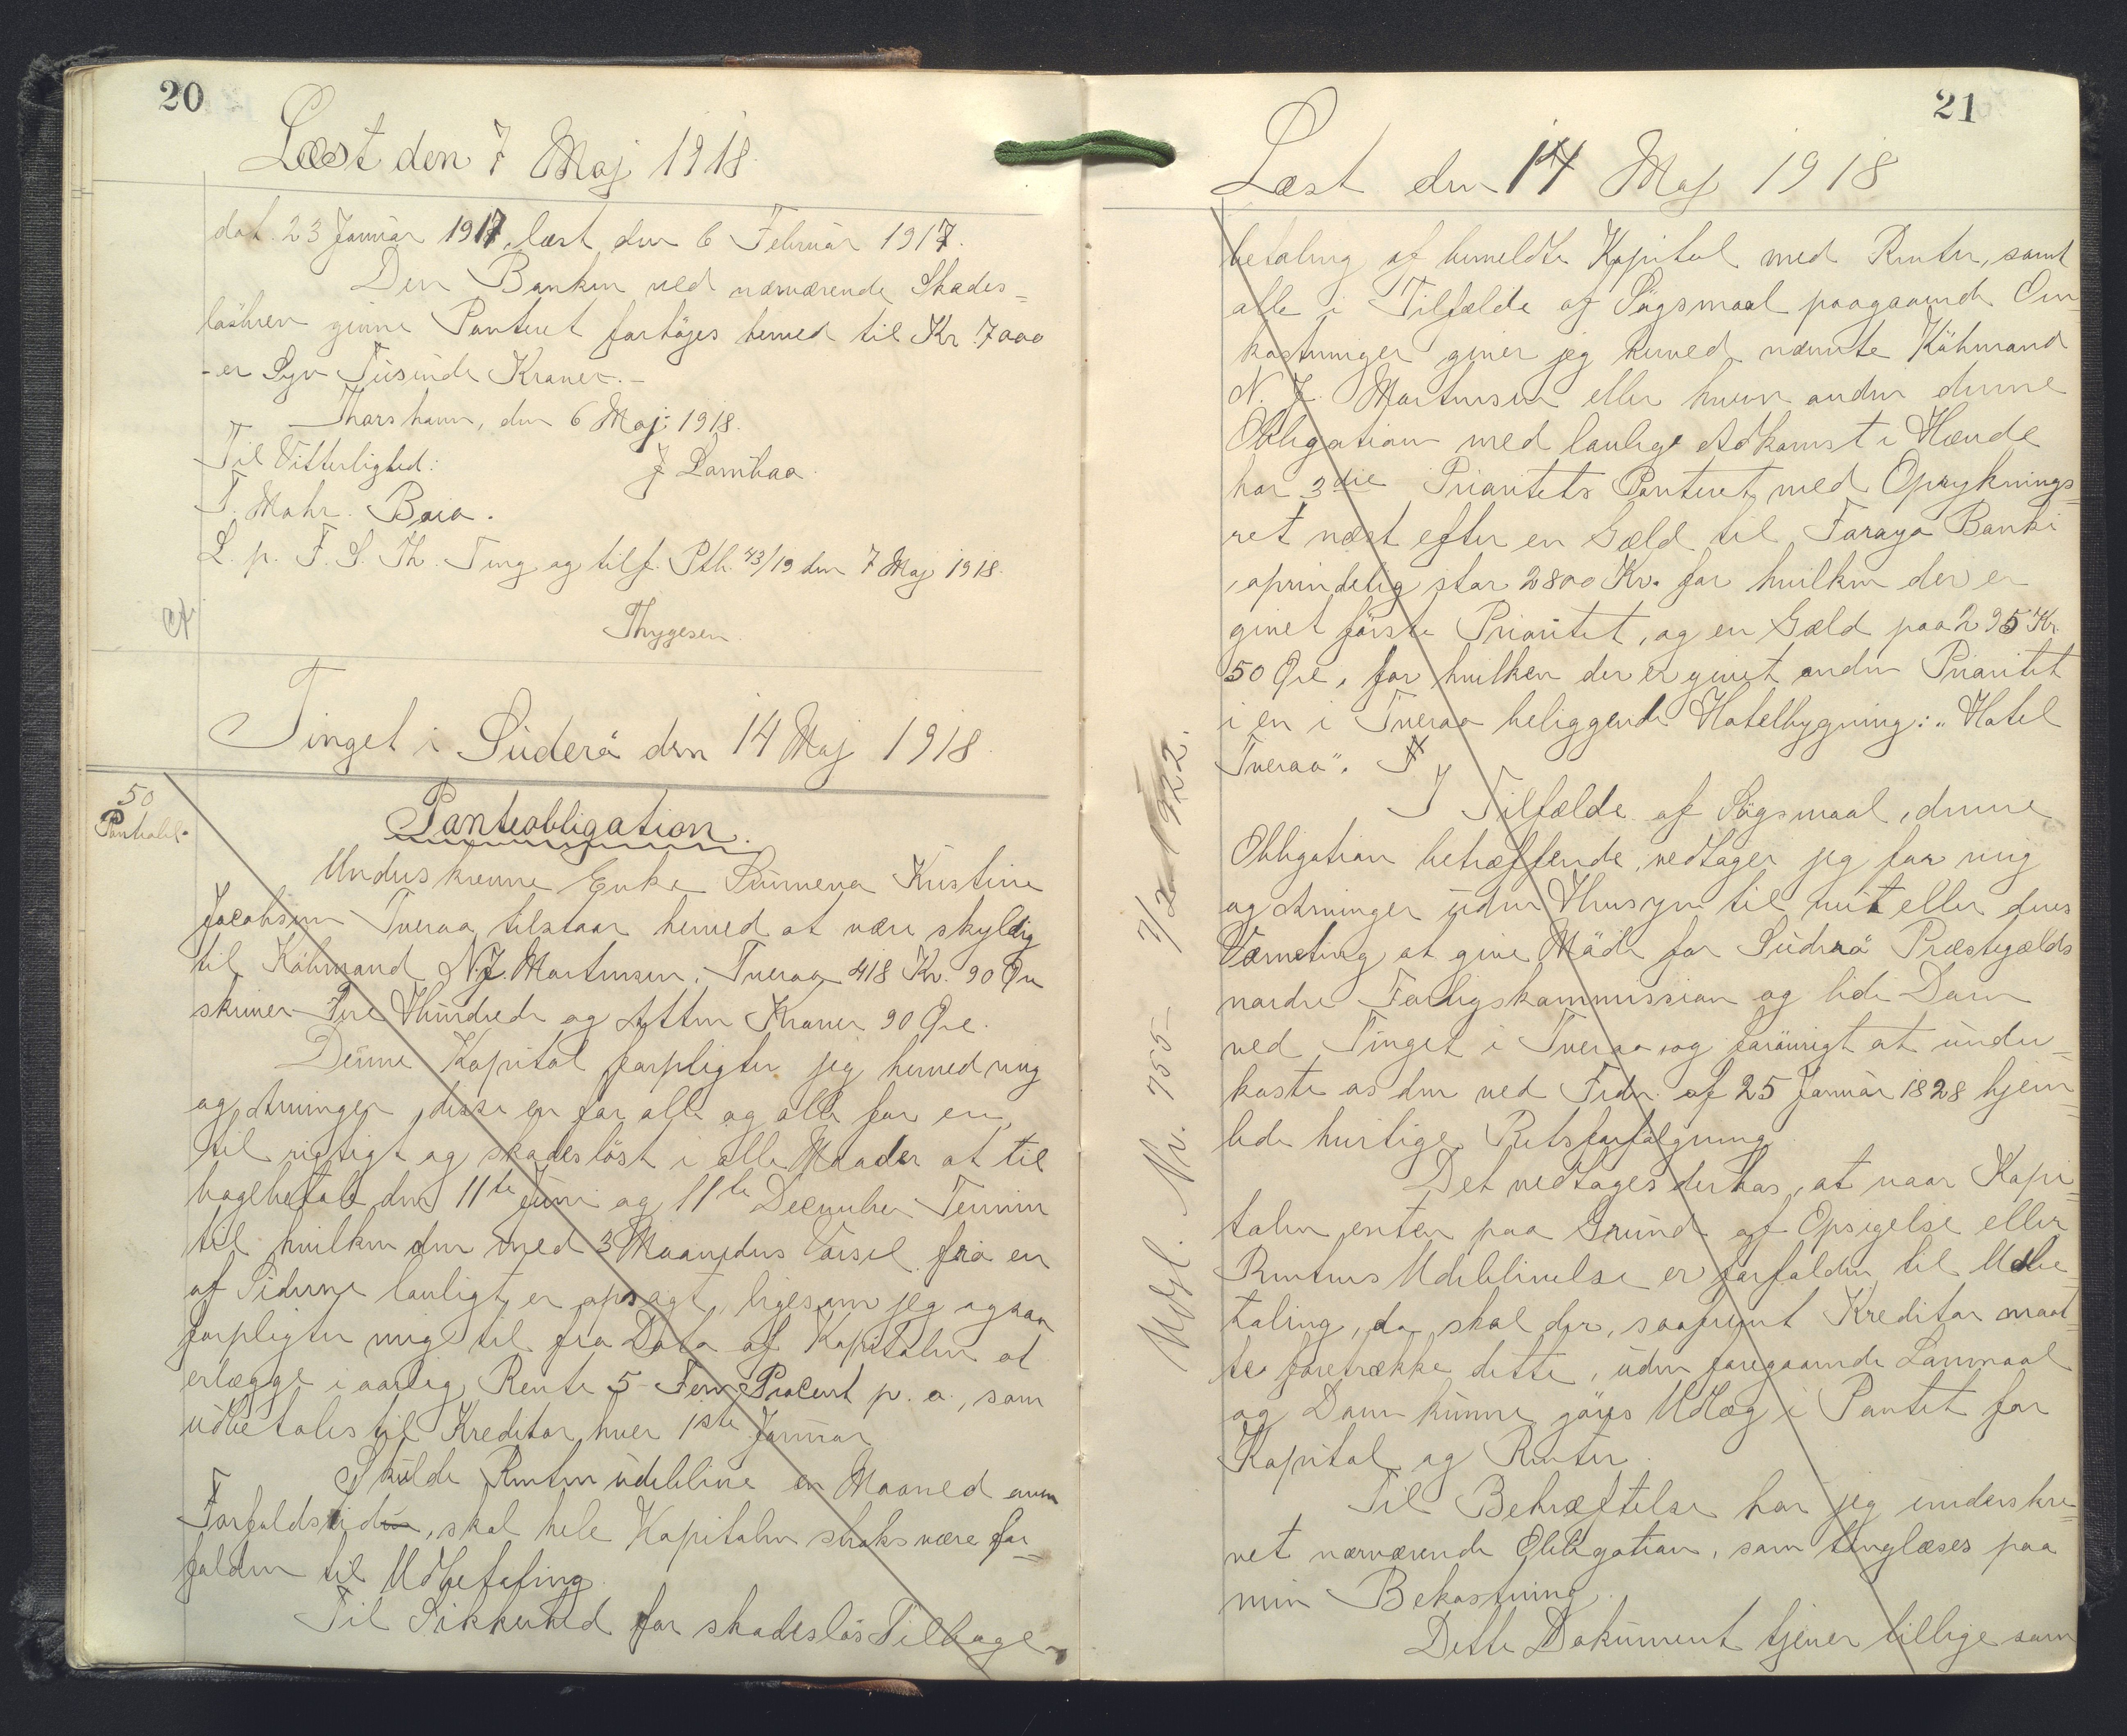 20
Læst den 7 Maj 1918.
dat. 23 Januar 1917, læst den 6 Februar 1917.
Den Banken ved nærværende Skades-
løsbrev givne Panteret forhøjes herved til Kr. 7000
- er Syv Tusinde Kroner.-
Thorshavn, den 6 Maj 1918.
Til Vitterlighed:
J Lamhaa.
T. Mohr. Boia.
L. p. F. S. Th. Ting og tilf. Ptb. 43/19 den 7 Maj 1918.
Thygesen
Tinget i Suderø den 14 Maj 1918.
50
Panteobl.
Panteobligation.
Underskrevne Enke Sunneva Kristine
Jacobsen Tveraa tilstaar herved at være skyldig
til Købmand N. J. Mortensen, Tveraa 418 Kr. 90 Øre
skriver Fire Hundrede og Atten Kroner 90 Øre.
Denne Kapital forpligter jeg herved mig
og Arvinger, disse en for alle og alle for en,
til rigtigt og skadesløst i alle Maader at til
bagebetale den 11te Juni og 11te December Termin
til hvilken den med 3 Maaneders Varsel fra en
af Siderne lovligt er opsagt, ligesom jeg ogsaa
forpligter mig til fra Dato af Kapitalen at
erlægge i aarlig Rente 5 - Fem Procent p. a., som
udbetales til Kreditor hver 1ste Januar
Skulde Renten udeblive en Maaned over
Forfaldstid, skal hele Kapitalen straks være for-
falden til Udbetaling.
Til Sikkerhed for skadesløs Tilbage-
21
Læst den 14 Maj 1918
betaling af bemeldte Kapital med Renter, samt
alle i Tilfælde af Søgsmaal paagaaende Om-
kostninger giver jeg herved nævnte Købmand
N. J. Mortensen eller hvem anden denne
Obligation med lovlige Adkomst i Hænde
har 3die Prioritets Panteret med Oprykнings-
ret næst efter en Gæld til Føroya Banki
, oprindelig stor 2800 Kr. for hvilken der er
givet første Prioritet, og en Gæld paa 295 Kr.
50 Øre, for hvilken der er givet anden Prioritet
i en i Tveraa beliggende Hotelbygning: "Hotel
Tveraa".
I Tilfælde af Søgsmaal, denne
Obligation betræffende, vedtager jeg for mig
og Arvinger uden Hensyn til mit eller deres
Værneting at give Møde for Suderø Præstegælds
nordre Forligskommission og lide Dom
ved Tinget i Tveraa, og forøvrigt at under-
kaste os den ved Frdn. af 25 Januar 1828 hjem-
lede hurtige Retsforfølgning
Det vedtages derhos, at naar Kapi-
talen enten paa Grund af Opsigelse eller
Renternes Udeblivelse er forfalden til Udbe-
taling, da skal der, saafremt Kreditor maat-
te foretrække dette, uden foregaaende Lavmaal
og Dom kunne gøres Udlæg i Pantet for
Kapital og Renter.
Til Bekræftelse har jeg underskre-
vet nærværende Obligation, som tinglæses paa
min Bekostning.
Dette Dokument tjener tillige som
Udsl. Nr. 755 - 7/2 1922.